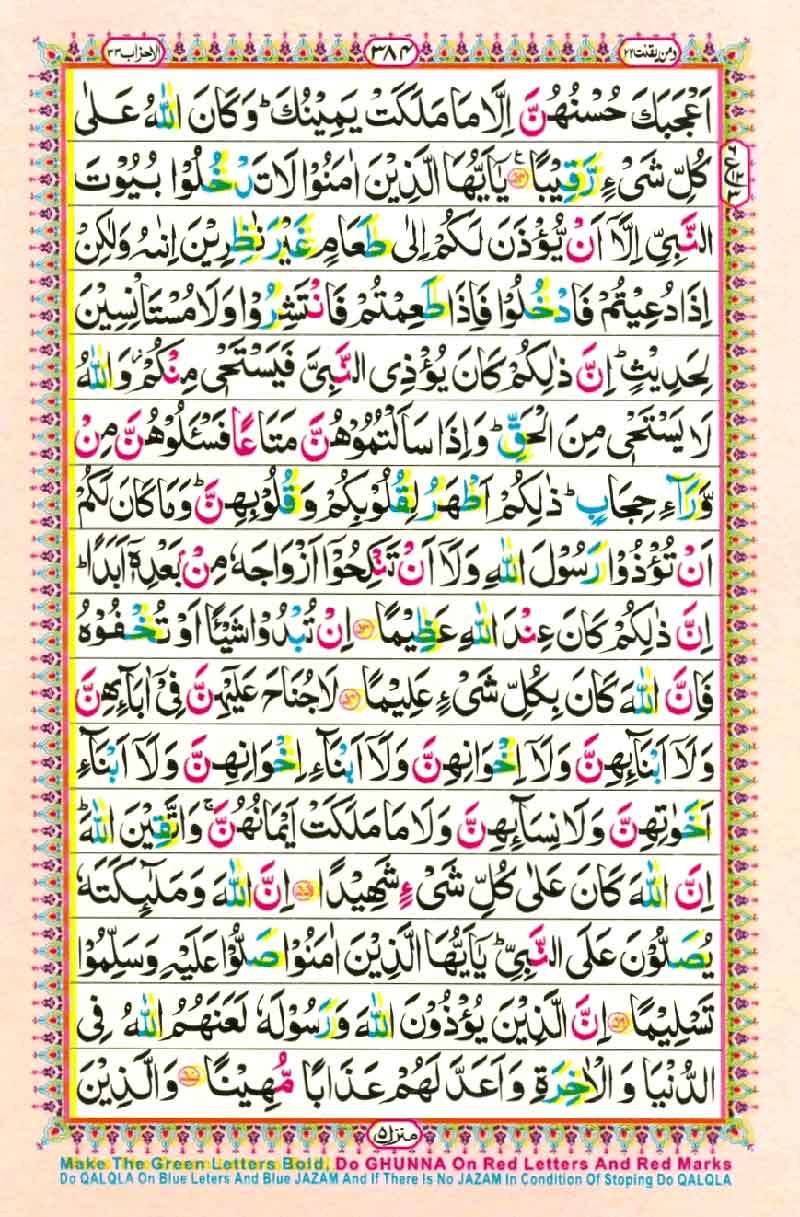 الاحزاب ٣٣ ٣٨٤ ومن يقنت ٢٢
اَعْجَبَكَ حُسْنُهُنَّ اِلَّا مَا مَلَكَتْ يَمِيْنُكَ ؕ وَكَانَ اللّٰهُ عَلٰى
كُلِّ شَىْءٍ رَّقِيْبًا يٰۤاَيُّهَا الَّذِيْنَ اٰمَنُوْا لَا تَدْخُلُوْا بُيُوْتَ
النَّبِىِّ اِلَّاۤ اَنْ يُّؤْذَنَ لَكُمْ اِلٰى طَعَامٍ غَيْرَ نٰظِرِيْنَ اِنٰٮهُ وَلٰكِنْ
اِذَا دُعِيْتُمْ فَادْخُلُوْا فَاِذَا طَعِمْتُمْ فَانْتَشِرُوْا وَلَا مُسْتَاْنِسِيْنَ
لِحَدِيْثٍ ؕ اِنَّ ذٰلِكُمْ كَانَ يُؤْذِى النَّبِىَّ فَيَسْتَحْىٖ مِنْكُمْ ؗ وَاللّٰهُ
لَا يَسْتَحْىٖ مِنَ الْحَقِّ ؕ وَاِذَا سَاَلْتُمُوْهُنَّ مَتَاعًا فَسْـَٔلُوْهُنَّ مِنْ
وَّرَآءِ حِجَابٍ ؕ ذٰلِكُمْ اَطْهَرُ لِقُلُوْبِكُمْ وَقُلُوْبِهِنَّ ؕ وَمَا كَانَ لَكُمْ
اَنْ تُؤْذُوْا رَسُوْلَ اللّٰهِ وَلَاۤ اَنْ تَنْكِحُوْۤا اَزْوَاجَهٗ مِنْۢ بَعْدِهٖۤ اَبَدًا ؕ
اِنَّ ذٰلِكُمْ كَانَ عِنْدَ اللّٰهِ عَظِيْمًا اِنْ تُبْدُوْا شَيْـًٔا اَوْ تُخْفُوْهُ
فَاِنَّ اللّٰهَ كَانَ بِكُلِّ شَىْءٍ عَلِيْمًا لَا جُنَاحَ عَلَيْهِنَّ فِىْۤ اٰبَآٮِٕهِنَّ
وَلَاۤ اَبْنَآٮِٕهِنَّ وَلَاۤ اِخْوَانِهِنَّ وَلَاۤ اَبْنَآءِ اِخْوَانِهِنَّ وَلَاۤ اَبْنَآءِ
اَخَوٰتِهِنَّ وَلَا نِسَآٮِٕهِنَّ وَلَا مَا مَلَكَتْ اَيْمَانُهُنَّ ۚ وَاتَّقِيْنَ اللّٰهَ ؕ
اِنَّ اللّٰهَ كَانَ عَلٰى كُلِّ شَىْءٍ شَهِيْدًا اِنَّ اللّٰهَ وَمَلٰٓٮِٕكَتَهٗ
يُصَلُّوْنَ عَلَى النَّبِىِّ ؕ يٰۤاَيُّهَا الَّذِيْنَ اٰمَنُوْا صَلُّوْا عَلَيْهِ وَسَلِّمُوْا
تَسْلِيْمًا اِنَّ الَّذِيْنَ يُؤْذُوْنَ اللّٰهَ وَرَسُوْلَهٗ لَعَنَهُمُ اللّٰهُ فِى
الدُّنْيَا وَالْاٰخِرَةِ وَاَعَدَّ لَهُمْ عَذَابًا مُّهِيْنًا وَالَّذِيْنَ
منزل ٥
Make The Green Letters Bold, Do GHUNNA On Red Letters And Red Marks
Do QALQLA On Blue Leters And Blue JAZAM And If There Is No JAZAM In Condition Of Stoping Do QALQLA